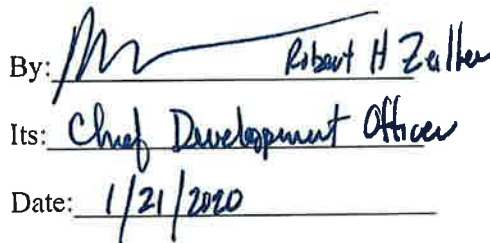 By: Robert H
Its: Chief Development Officer
Date: 1/21/2020